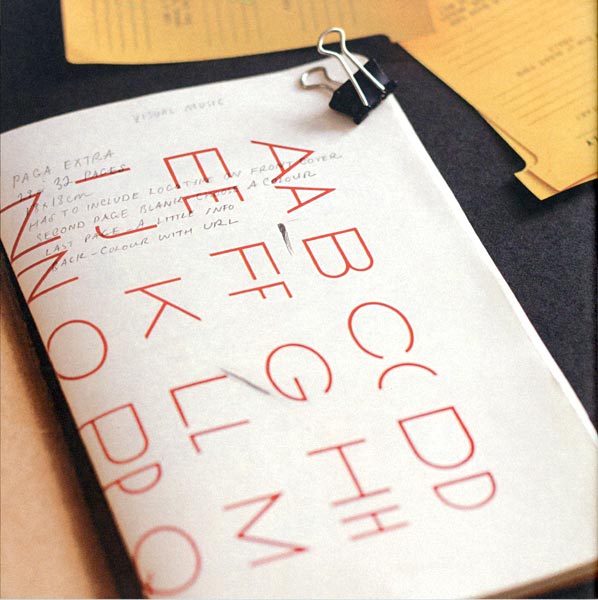 VISUAL MUSIC
PAGA EXTRA
32 PAGES
18cm
HAS TO INCLUDE LOGOTYPE ON FRONT COVER
SECOND PAGE BLANK CHOOSE A COLOUR
LAST PAGE - A LITTLE INFO
BACK - COLOUR WITH URL
AA B CC DD
EE FF G HH
I J K LL M
NN O PP Q